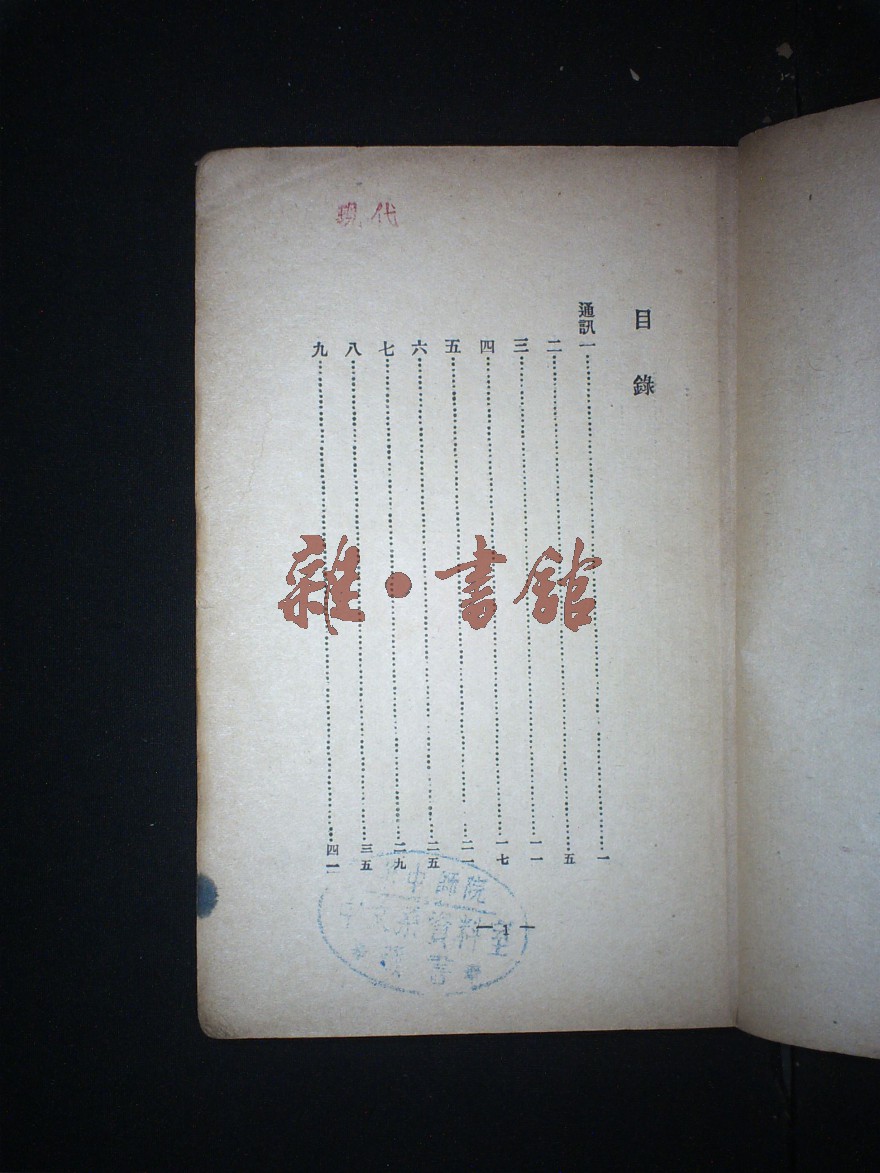 現代
目錄
通訊一……一
二……五
三……一一
四……一七
五……二一
六……二五
七……二九
八……三五
九……四一
— 1 —
雜·書館
中師院
文系資料室
書